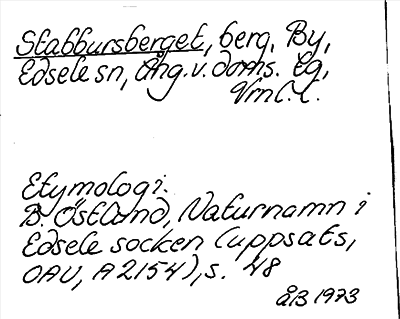 Stabbursberget, berg, By,
Edsele sn, Ång. v. doms. tg,
Vrnl. l.
Etymologi:
B. Östlund, Naturnamn i
Edsele socken (uppsats,
OAU, A 2154), s. 48
ÅB 1973